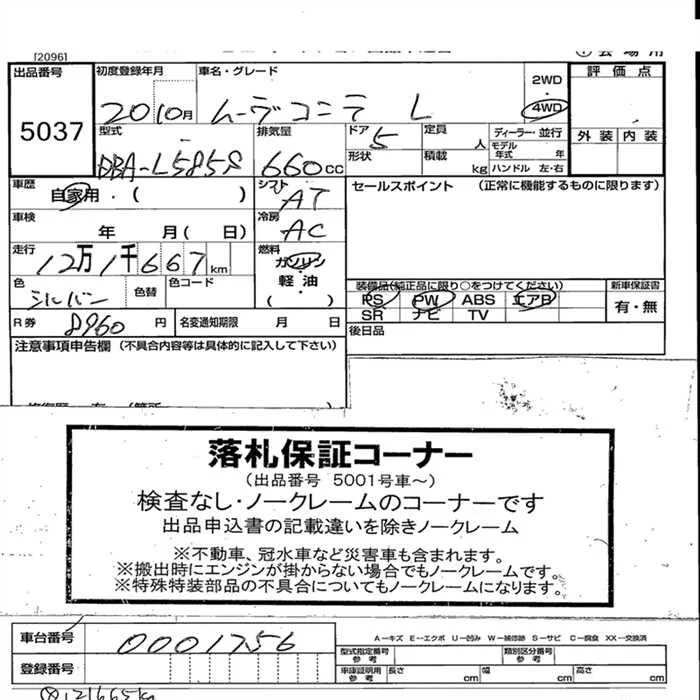 [2096]
出品番号 初度登録年月 車名・グレード 2WD 評価点
5037 2010 10月 ムーヴコンテ L 4WD
型式 排気量 ドア 定員 ディーラー・並行 外装 内装
DBA-L585S 660cc 5 人 モデル年式 年
形状 積載 kg ハンドル 左・右
車歴 自家用・( ) シフト AT セールスポイント (正常に機能するものに限ります)
車検 年 月(日) 冷房 AC
走行 12万1千667km 燃料 ガソリン
軽油
色 シルバー 色替 色コード ( ) 装備品(純正品に限り○をつけてください) 新車保証書
PS PW ABS エアB 有・無
SR ナビ TV
R券 8960円 名変通知期限 月 日 後日品
注意事項申告欄(不具合内容等は具体的に記入して下さい)
落札保証コーナー
(出品番号 5001号車～)
検査なし・ノークレームのコーナーです
出品申込書の記載違いを除きノークレーム
※不動車、冠水車など災害車も含まれます。
※搬出時にエンジンが掛からない場合でもノークレームです。
※特殊特装部品の不具合についてもノークレームになります。
車台番号 0001756 A−キズ E−エクボ U−凹み W−補修跡 S−サビ C−腐食 XX−交換済
型式指定番号 参考 類別区分番号 参考
登録番号 車庫証明用 参考 長さ cm 幅 cm 高さ cm